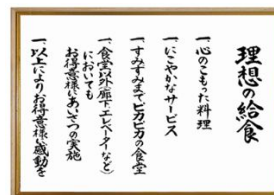 理想の給食
一、心のこもった料理
一、にこやかなサービス
一、すみずみまでピカピカの食堂
一、食堂以外(廊下エレベーターなど)
においても
お得意様にあいさつの実施
一、以上によりお得意様に感動を